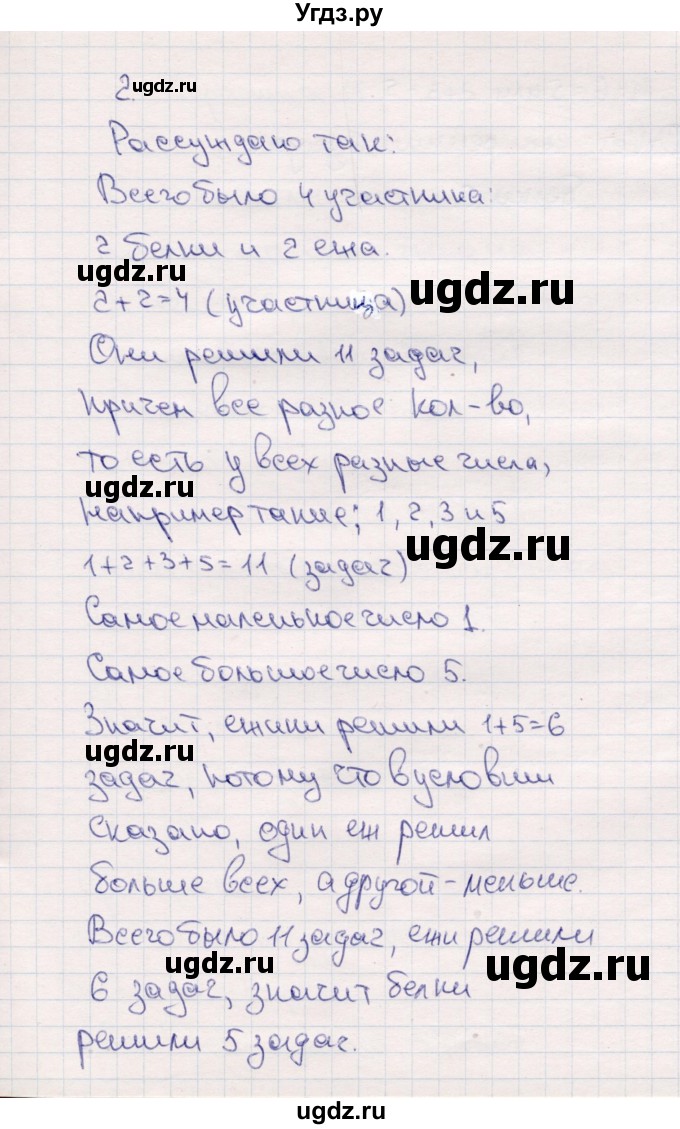 Угдз.ру
2.
ugdz.ru
Рассуждаю так:
Всего было 4 участника:
2 белки и 2 ежа.
ugdz.ru
ugdz.ru
2+2=4 (участница)
Они решили 11 задач,
причем все разное кол-во,
то есть у всех разные числа,
ugdz.ru
например такие; 1, 2, 3 и 5
ugdz.ru
1+2+3+5=11 (задач)
Самое маленькое число 1.
Самое большое число 5.
Значит, ежики решили 1+5=6
ugdz.ru
задач, потому что в условии
сказано, один еж решил
больше всех, а другой - меньше.
Всего было 11 задач, ежи решили
ugdz.ru
ugdz.ru
6 задач, значит белки
решили 5 задач.
ugdz.ru